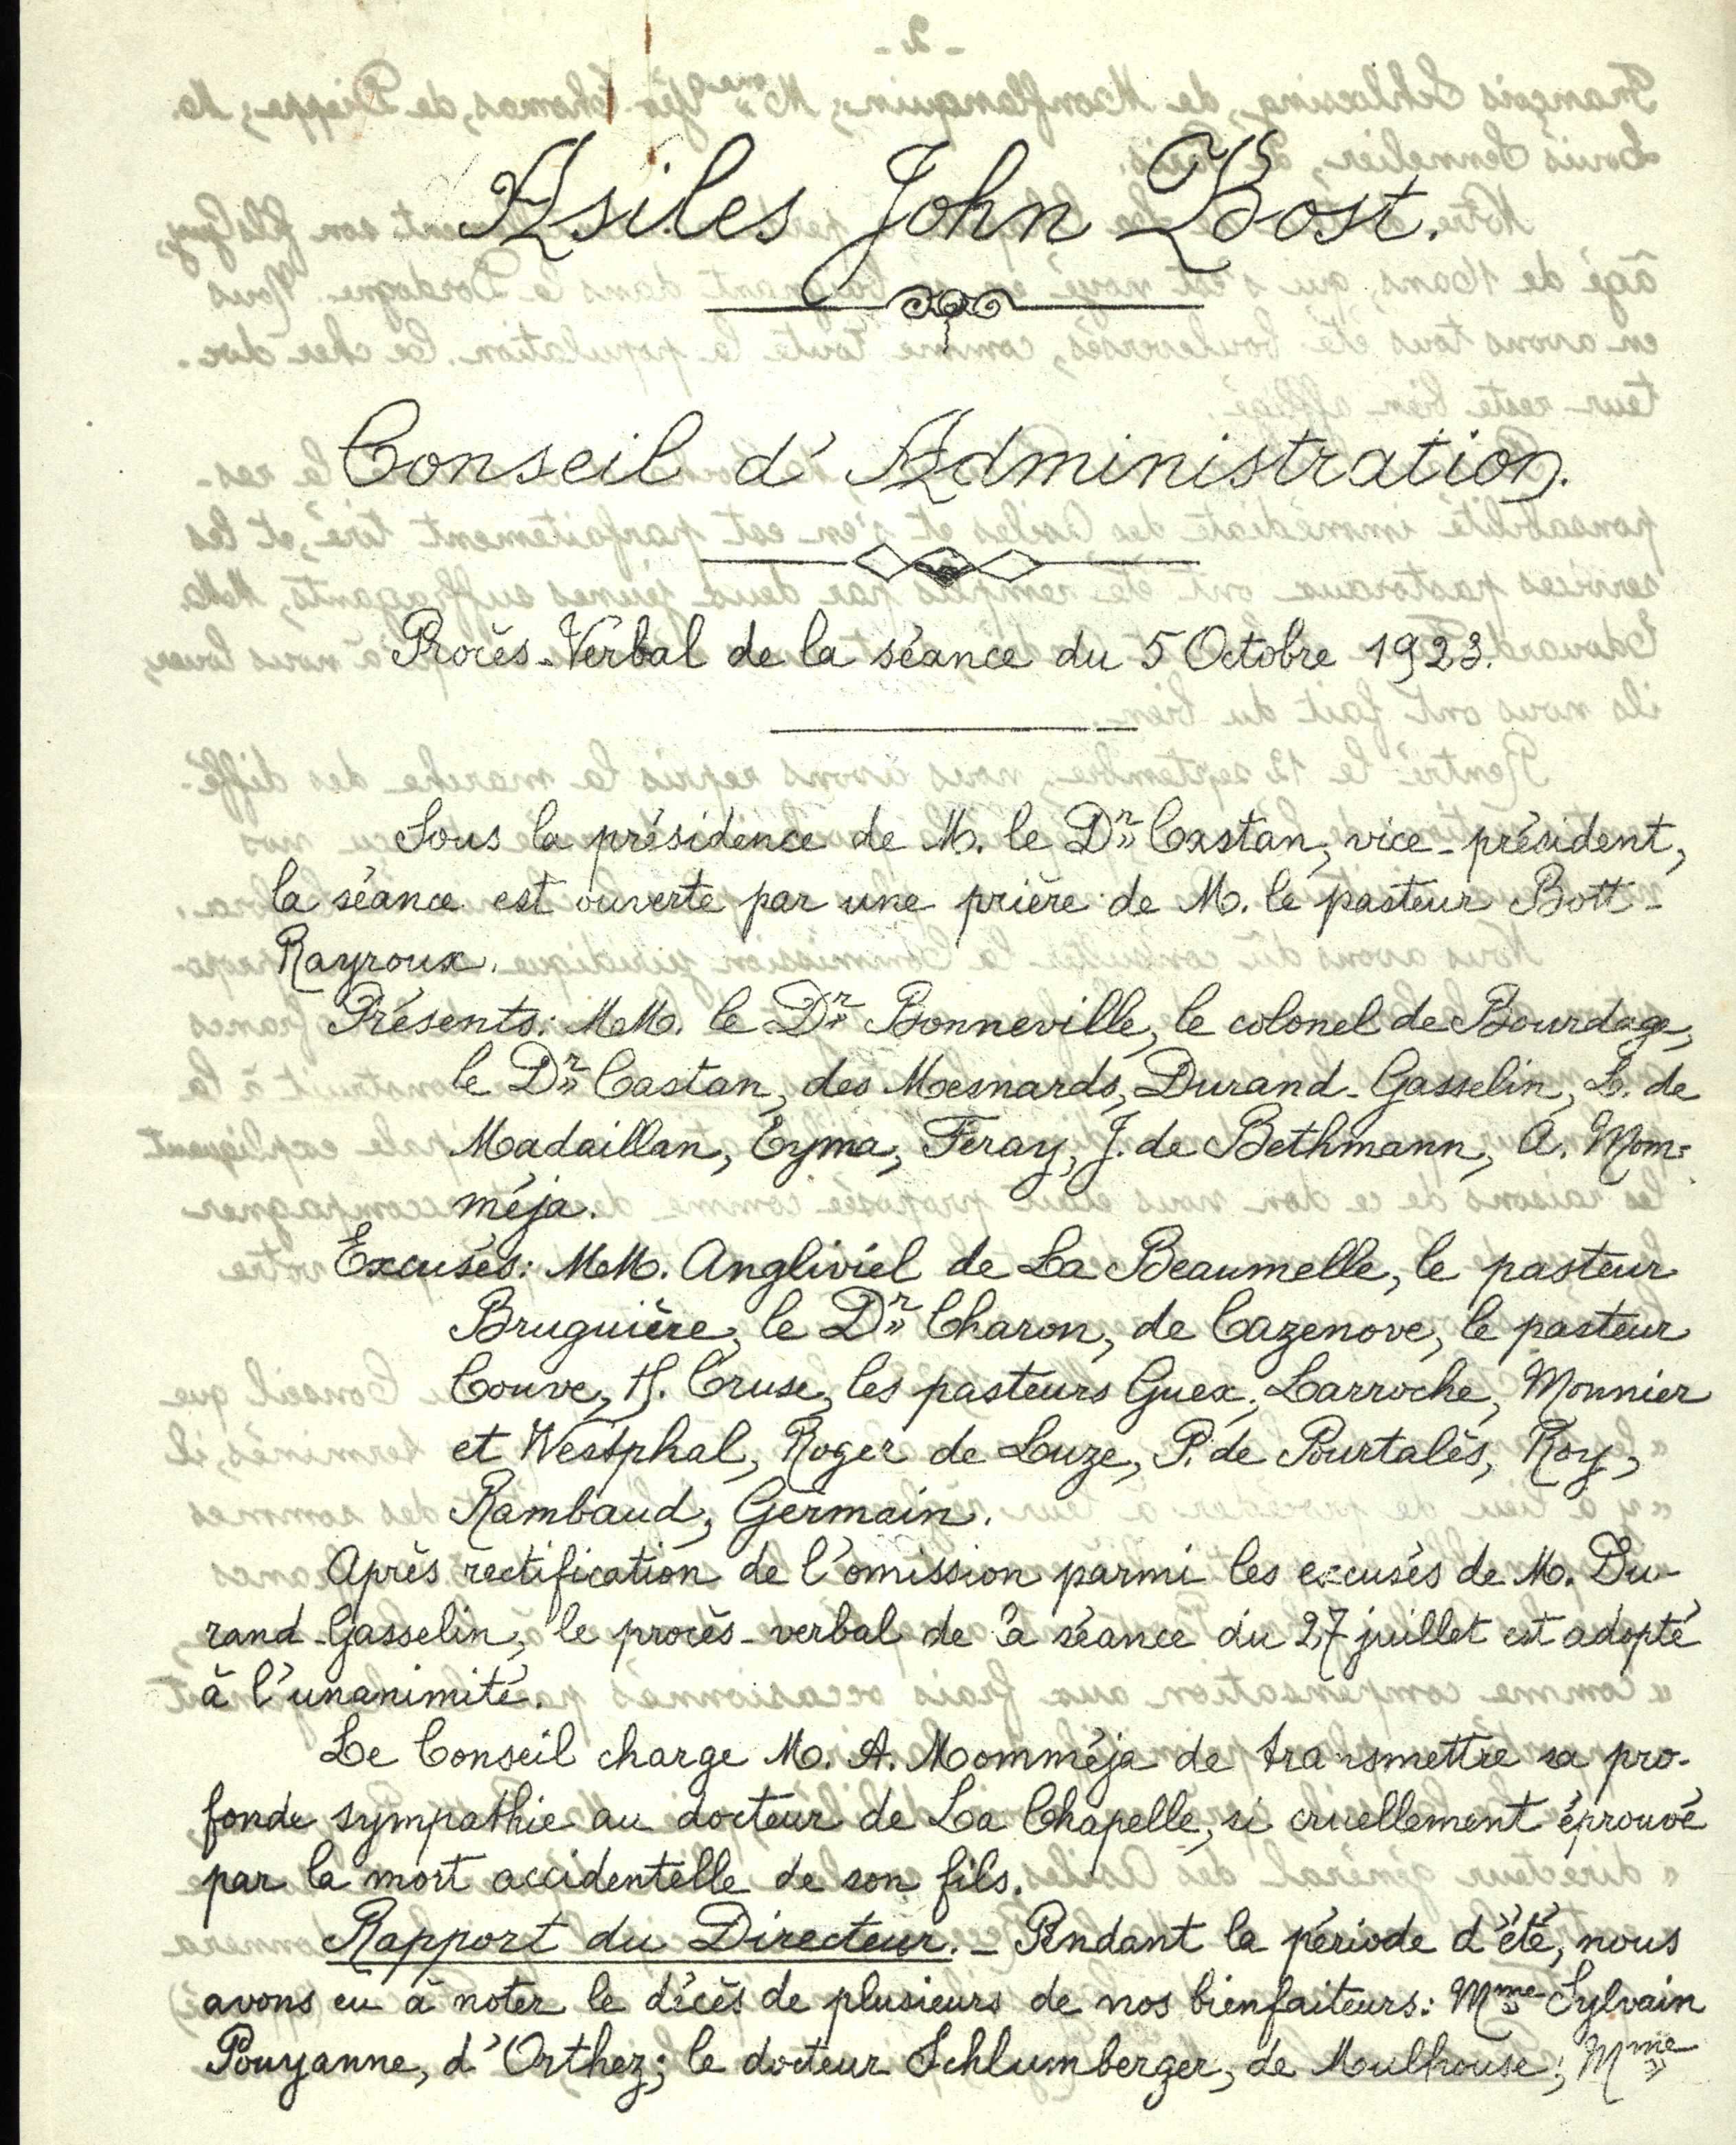 Asiles John Bost.
Conseil d'Administration.
Procès-Verbal de la séance du 5 Octobre 1923.
Sous la présidence de M. le Dr Castan, vice-président,
la séance est ouverte par une prière de M. le pasteur Bott-
Rayroux.
Présents: MM. le Dr Bonneville, le colonel de Bourdage,
le Dr Castan, des Mesnards, Durand-Gasselin, L. de
Madaillan, Eyma, Feray, J. de Bethmann, A. Mom-
méja.
Excusés: MM. Angliviel de La Beaumelle, le pasteur
Bruguière, le Dr Charon, de Cazenove, le pasteur
Couve, H. Cruse, les pasteurs Guex, Larroche, Monnier
et Westphal, Roger de Luze, P. de Pourtalès, Roy,
Rambaud, Germain.
Après rectification de l'omission parmi les excusés de M. Du-
rand-Gasselin, le procès-verbal de la séance du 27 juillet est adopté
à l'unanimité.
Le Conseil charge M. A. Momméja de transmettre sa pro-
fonde sympathie au docteur de La Chapelle, si cruellement éprouvé
par la mort accidentelle de son fils.
Rapport du Directeur. - Pendant la période d'été, nous
avons eu à noter le décès de plusieurs de nos bienfaiteurs: Mme Sylvain
Pouyanne, d'Orthez; le docteur Schlumberger, de Mulhouse; Mme